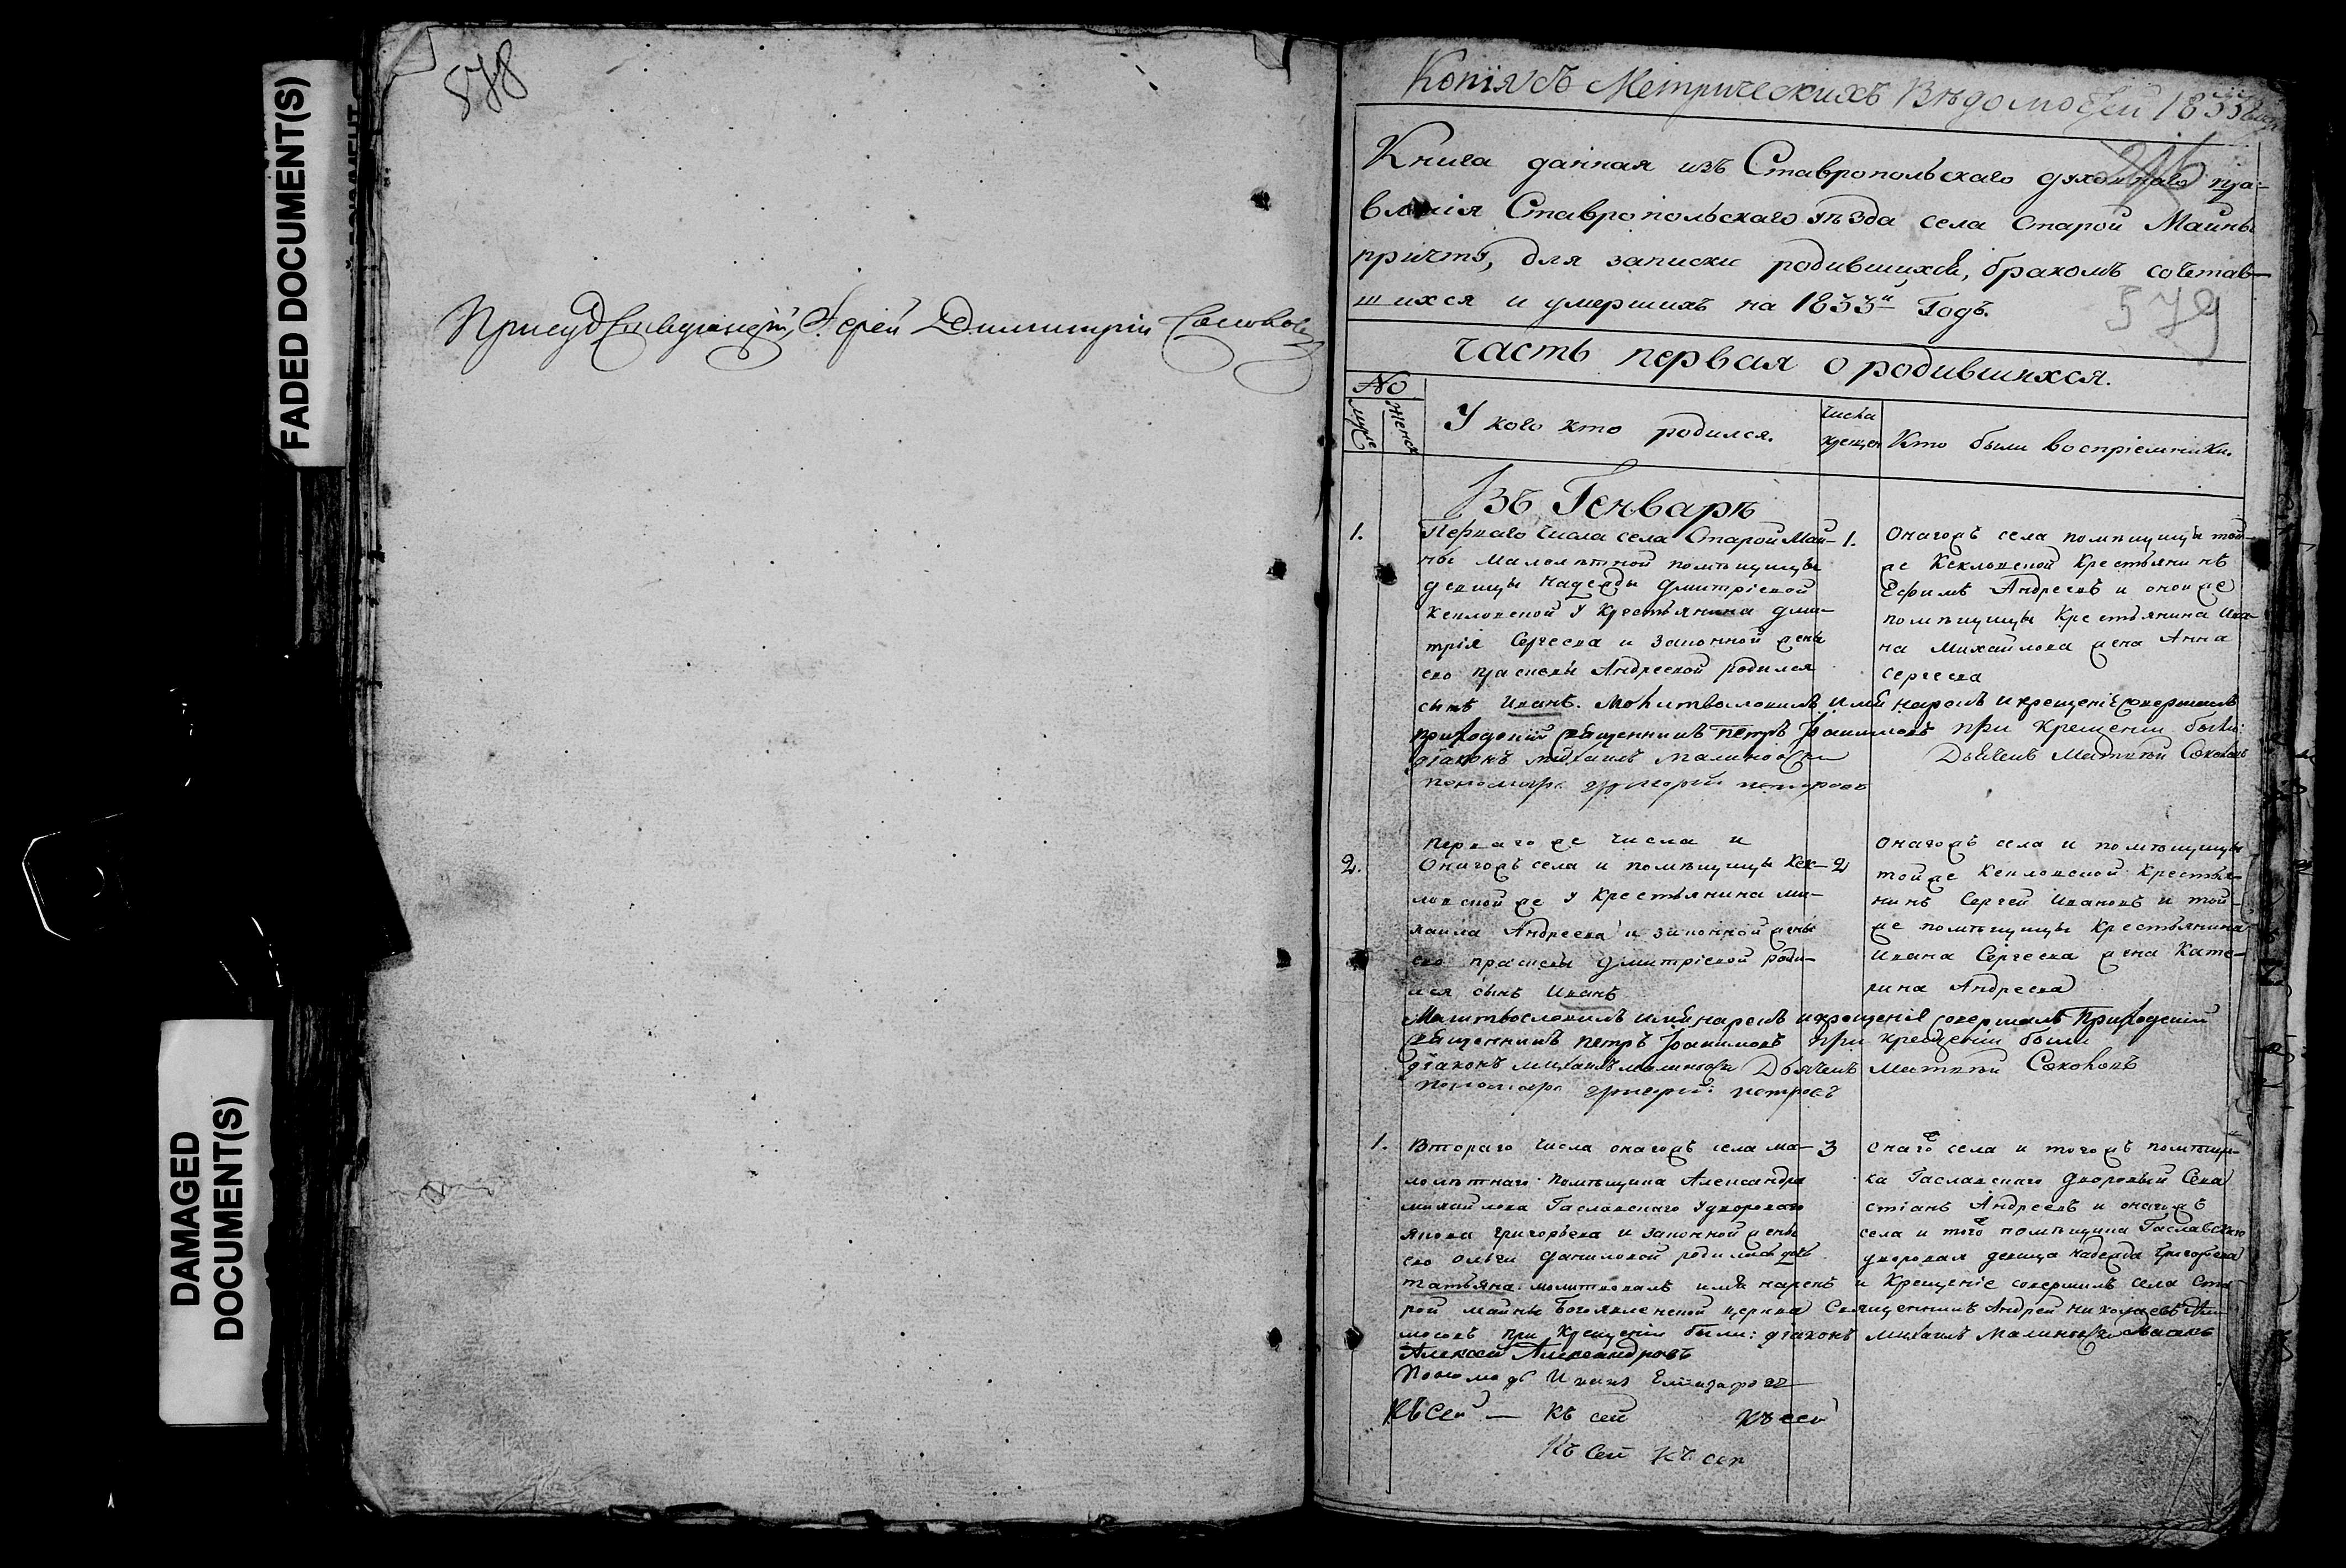 FADED DOCUMENT(S)
DAMAGED
DOCUMENT(S)
578
Іерей Димитрій
Копія съ Метрическихъ Вѣдомостей 1833
Книга данная изъ Ставропольскаго духовнаго пра-
вленія Ставропольскаго уѣзда села Старой Майны
причту, для записки родившихся, бракомъ сочетав-
шихся и умершихъ на 1833й Годъ.
579
Часть первая о родившихся.
No
Муже
Женск
У кого кто родился.
числа
крещен
Кто были воспріемники.
Въ Генварѣ
1.
Перваго числа села Старой Май-
ны малолѣтной помѣщицы
девицы Надежды Дмитріевой
у крестьянина Дми-
трія Сергеева и законной жены
его Прасковьи Андреевой родился
сынъ Иванъ. Молитвословилъ имя нарекъ и крещеніе совершилъ
приходскій священникъ Петръ Іоакимовъ при крещеніи были:
діаконъ Михаилъ
пономарь Григорій Петровъ
1.
Онагожъ села помѣщицы той-
же крестьянинъ
Ефимъ Андреевъ и оной же
помѣщицы крестьянина Ива-
на Михайлова жена Анна
Сергеева
Дьячекъ Матвѣй Соколовъ
2.
перваго же числа и
Онагожъ села и помѣщицы Кек-
ловской же у крестьянина Ми-
хаила Андреева и законной жены
его Прасковьи Дмитріевой роди-
лся сынъ Иванъ
Молитвословилъ имя нарекъ и крещеніе совершалъ Приходскій
священникъ Петръ Іоакимовъ при крещеніи были
діаконъ Михаилъ Дьячекъ Матвѣй Соколовъ
пономарь Григорій Петровъ
2
Онагожъ села и помѣщицы
тойже крестья-
нинъ Сергей Ивановъ и той-
же помѣщицы крестьянина
Ивана Сергеева жена Кате-
рина Андреева
1.
Втораго числа онагожъ села ма-
лолѣтнаго помѣщика Александра
Михайлова Гаславскаго у двороваго
Якова Григорьева и законной жены
его Ольги Даниловой родилась дочь
Татьяна. молитвовалъ имя нарекъ и крещеніе совершилъ села Ста-
рой Майны Богоявленской церкви Священникъ Андрей Николаевъ
при крещеніи были: діаконъ Михаилъ
Алексей Александровъ
Пономарь Иванъ
3
онаго села и тогожъ помѣщи-
ка Гаславскаго дворовый Сева
стіанъ Андреевъ и онагожъ
села и того помѣщика Гаславскаго
дворовая девица Надежда Григорьева
Къ сей — Къ сей Къ сей
Къ сей Къ сей